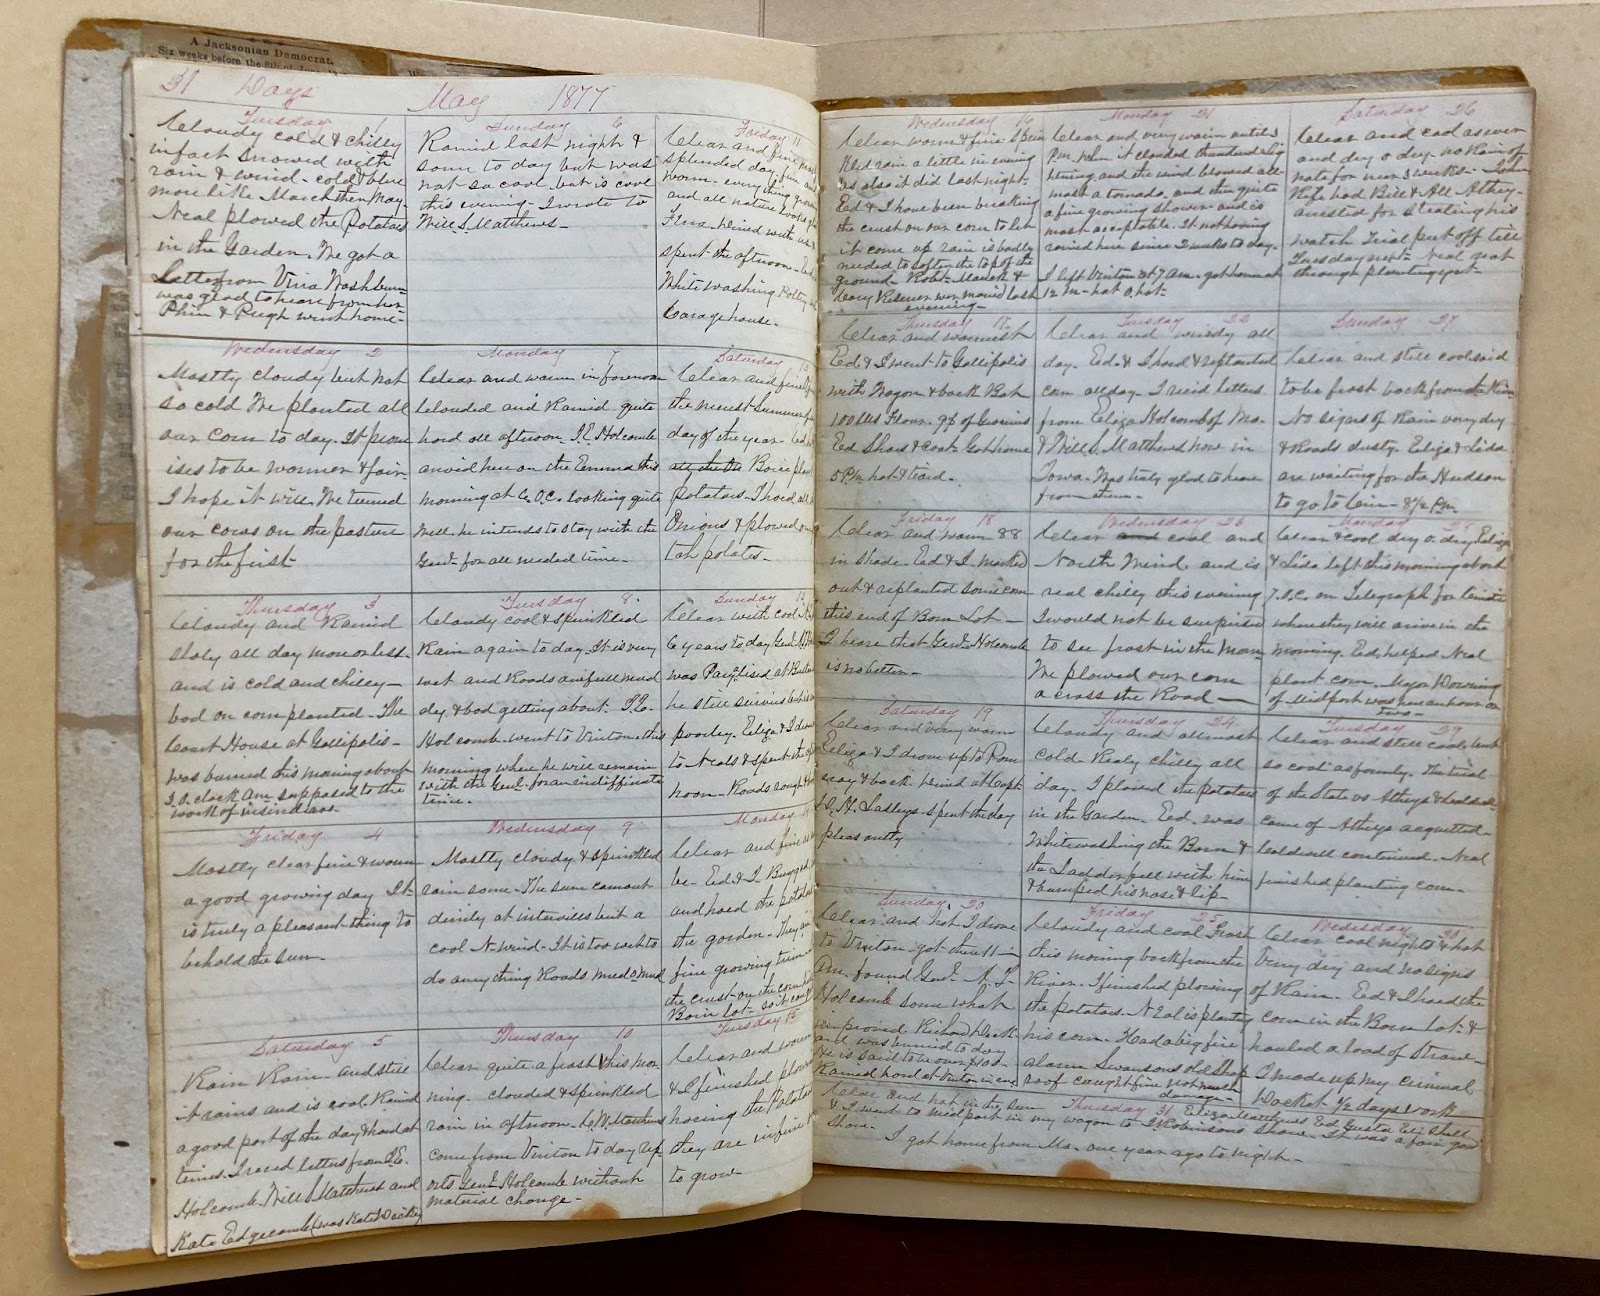 A Jacksonian Democrat.
Six weeks before the 8th of
31 Days May 1877
Tuesday 1
Cloudy cold & chilly
in fact snowed with
rain & wind - cold & blue
more like March then May.
Neal plowed the Potatoes
in the Garden. We got a
Letter from Vina Washburn
was glad to hear from her
Phin & Pugh went home-
Wednesday 2
Mostly cloudy but not
so cold We planted all
our corn to day. It prom
ises to be warmer & fair
I hope it will. We turned
our cows on the pasture
for the first
Thursday 3
Cloudy and Rained
sloly all day more or less-
and is cold and chilley-
bad on corn planted- The
Court House at Gallipolis-
was burned this morning about
3 O. clock Am supposed to the
work of insindiars-
Friday 4
Mostly clear fine & warm
a good growing day It
is truly a pleasant thing to
behold the sun.
Saturday 5
Rain Rain- and still
it rains and is cool Raind
a good part of the day & hard at
times. I recd letters from J.E.
Holcomb. Will S Matthews and
Kate Edgecomb (was Kate Dickey
Sunday 6
Raind last night &
some to day but was
not so cool but is cool
this evening- I wrote to
Will S. Matthews-
Monday 7
Clear and warm in forenoon
clouded and Rained quite
hard all afternoon. J.E. Holcomb
arvid here on the Emma this
morning at 6. O.C. looking quite
well. he intends to stay with the
Genl for all needed time.
Tuesday 8.
Cloudy cool & sprinkled
Rain again to day. It is very
wet and Roads awfull mud
dy. & bad getting about. J.E.
Holcomb. went to Vinton this
morning where he will remain
with the Genl. for an indiffinate
time.
Wednesday 9
Mostly cloudy & sprinkled
rain some- The sun came out
dimly at intervills but a
cool N. wind- It is too wet to
do any thing Roads mud o mud
Thursday 10
Clear quite a frost this mor
ning. clouded & sprinkled
rain in aftnoon. C.W. Matthews
come from Vinton to day rep
orts Genl Holcomb without
material change-
Friday 11
Clear and fine
splended day
warm- every thing grow
and all nature looks
Flora dined with us &
spent the afternoon- Ed
White washing Poltry
Carage house.
Saturday 12
Clear and fine
the nicest Summer
day of the year- Ed
potatoes- I hoed
Onions & plowed
tah potates-
Sunday 13
Clear with cool N.
6 years to day Genl
was Paralised at
he still survives but
poorley. Eliza & I drove
to Neals & spent the
noon- Roads rough
Monday 14
Clear and fine
be- Ed & I Bugged
and hoed the potatoes
the garden- They
fine growing time
the crust on the corn
Barn lot- so it can
Tuesday 15
Clear and warm
& I finished plowing
hoeing the Potatoes
they are in fine
to grow
Wednesday 16
Clear warm & fine Sprin
kled rain a little in evening
as also it did last night-
Ed & I have been breaking
the crust on our corn to let
it come up rain is badly
needed to soften the top of the
ground-
evening-
Thursday 17.
Clear and warmest
Ed & I went to Gallipolis
with Wagon & back Bot
100 lbs Flour.
Ed Shoes & Coat- Got home
5 P.M. hot & tired.
Friday 18
Clear and warm 88
in shade- Ed & I marked
out & replanted some corn
this end of Barn Lot-
I heare that Genl Holcomb
is no better-
Saturday 19
Clear and very warm
Eliza & I drove up to Pom
eroy & back dined at Capt
Lasleys spent the day
pleasantly
Sunday 20
Clear and hot I drove
to Vinton got there 11-
Am. found Genl. A.T.
Holcomb some what
improved.
and was buried to day
He is said to be over
Rained hard at Vinton in eve
Monday 21
Clear and very warm until 3
P.m. when it clouded thundered lig
htening, and the wind blowed all-
most a tornado, and then quite
a fine growing shower- and is
most acceptable. It not having
rained here since 2 weeks to day.
I left Vinton at 7 am- got home at
12 M- hot o. hot-
Tuesday 22
Clear and windy all
day. Ed. & I hoed & replanted
corn all day. I recd letters
from Eliza Holcomb of Mo-
& Will S. Matthews now in
Iowa. Was truly glad to heare
from them-
Wednesday 23
Clear and cool and
North Wind. and is
real chilly this evening
I would not be surprised
to see frost in the morn
We plowed our corn
a cross the Road-
Thursday 24.
Cloudy and allmost
cold- Realy chilly all
day. I plowed the potatoes
in the Garden. Ed. was
Whitewashing the Barn &
the Ladder fell with him
& bumped his nose & lip-
Friday 25
Cloudy and cool Frost
this morning back from the
River. I finished plowing
the potatoes. Neal is planting
his corn. Had a big fire
alarm Swansons old Shop
roof caught fire not much
damage-
Saturday 26
Clear and cool as ever
and dry o dry- no Rain of
note for near 3 weeks- John
Rife had Bill & All Athey-
arrested for stealing his
watch Trial put off till
Tuesday next- Neal got
through planting yet-
Sunday 27
Clear and still cool said
to be frost back from the River
No signs of Rain very dry
& Roads dusty. Eliza & Lida
are waiting for the Hudson
to go to Cin- 8½ P.m.
Monday 28
Clear & cool dry o. dry Eliza
& Lida left this morning about
7. O.C. on Telegraph for Cincinti
where they will arive in the
morning. Ed. helped Neal
plant corn. Major Downing
of Midport was here an hour or
two-
Tuesday 29
Clear and still cool but
so cool as formly. The trial
of the State vs Atheys & Caldwell
came of Atheys acquitted-
Caldwell continued. Neal
finished planting corn-
Wednesday 30
Clear cool nights & hot
Very dry and no signs
of Rain- Ed & I hoed the
corn in the Barn Lot- &
hauled a load of Straw-
I made up my criminal
Docket ½ days work
Thursday 31
Clear and hot in the sun Eliza Matthews Ed. Gustie Eli Shell
& I went to Midport in my wagon to J Robinsons Show. It was a fair good
Show.
I got home from Mo- one year ago to night-